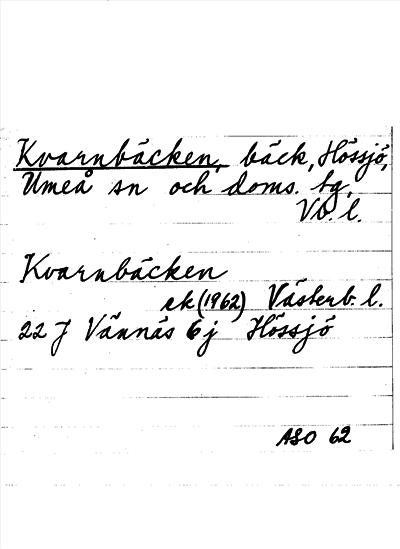 Kvarnbäcken, bäck, Hössjö,
Umeå sn och doms. tg,
Vb. l.
Kvarnbäcken
ek (1962) Västerb. l.
22 J Vännäs 6 j Hössjö
ASO 62